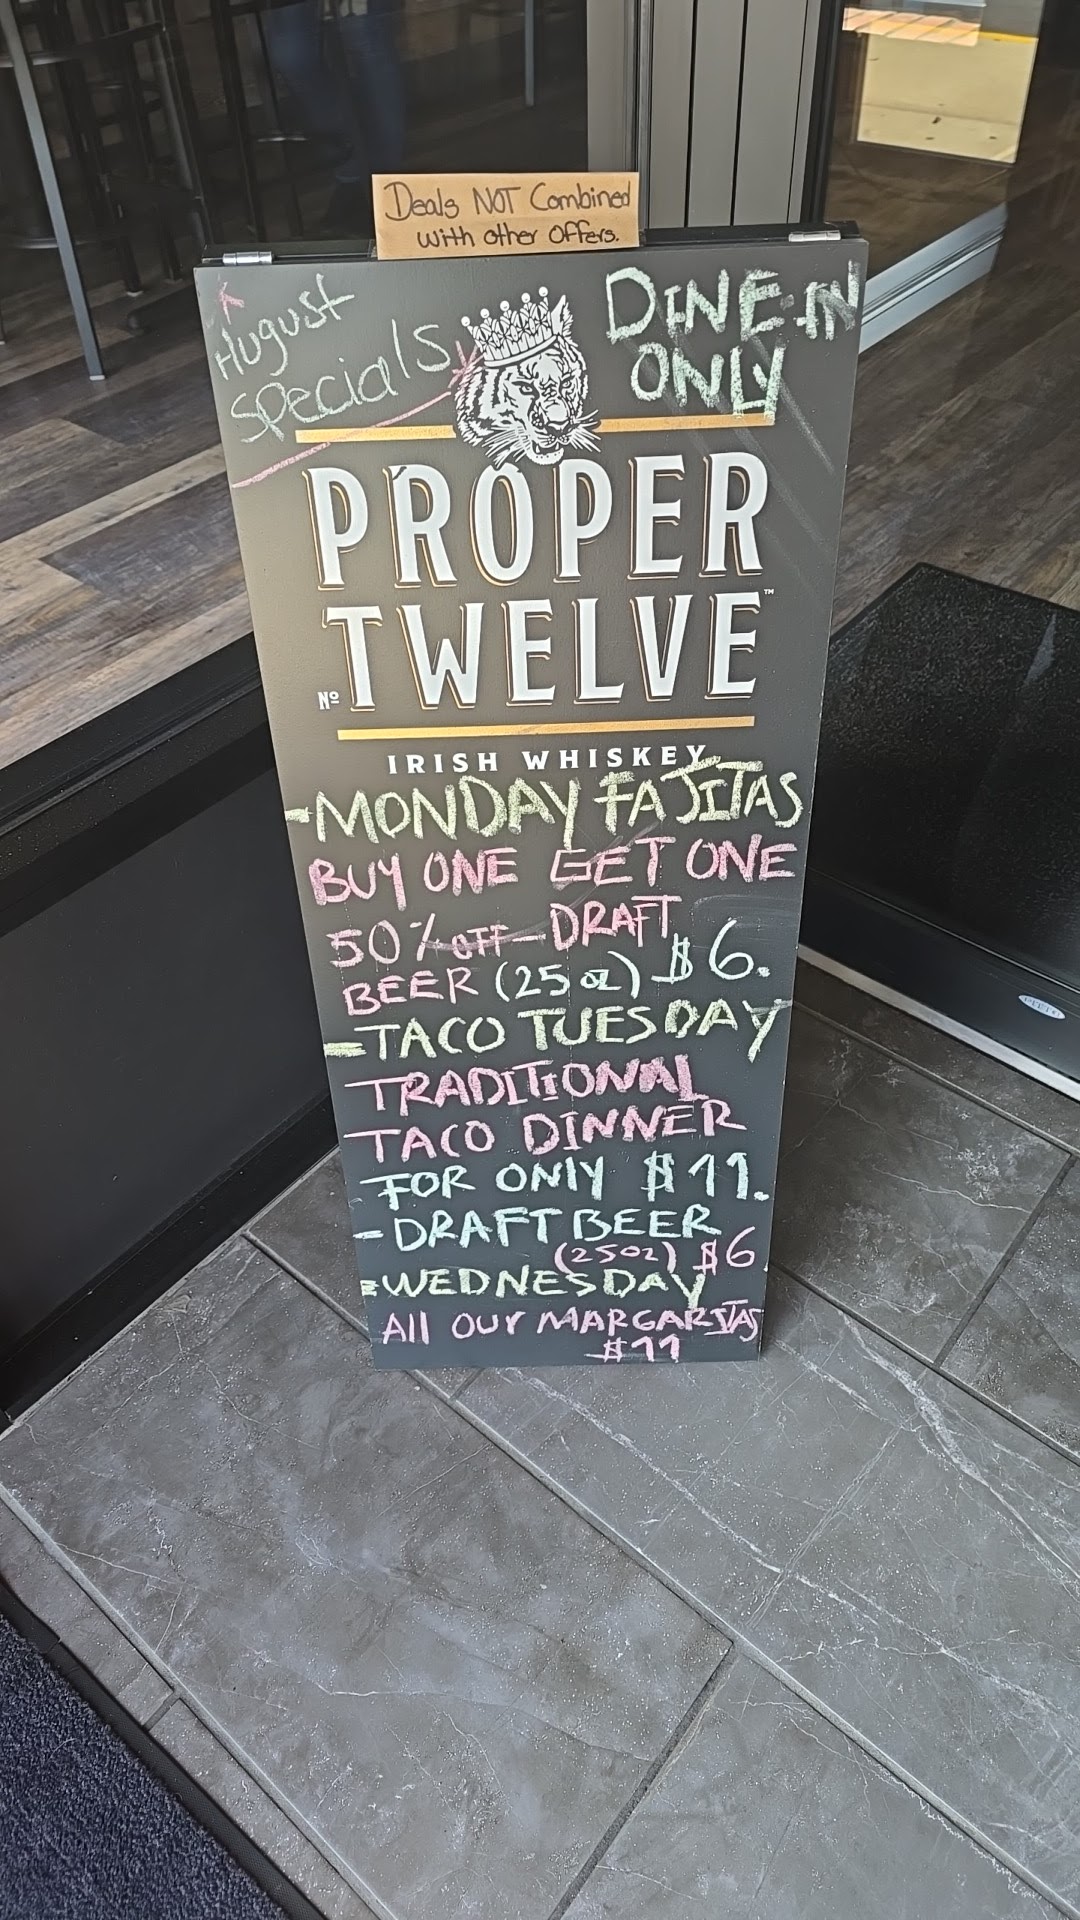 Deals NOT Combined
with other Offers.
August
Specials
DINE-IN
ONLY
PROPER
No. TWELVE™
IRISH WHISKEY
-MONDAY FAJITAS
BUY ONE GET ONE
50% OFF - DRAFT
BEER (25 oz) $6.
-TACO TUESDAY
TRADITIONAL
TACO DINNER
FOR ONLY $11.
-DRAFT BEER
(25oz) $6
=WEDNESDAY
All OUR MARGARITAS
$11